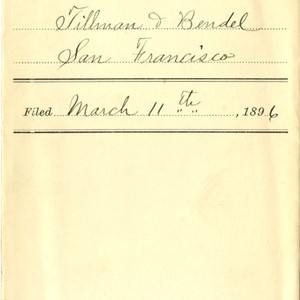 Tillman & Bendel
San Francisco
Filed March 11th, 1896